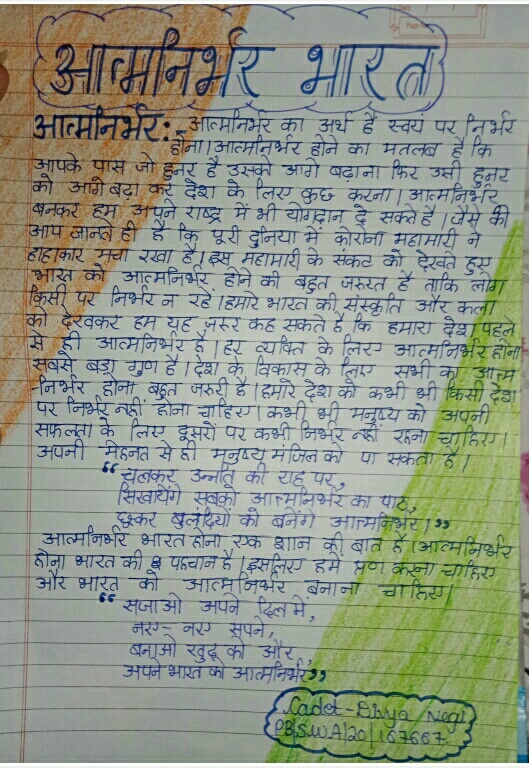 आत्मनिर्भर भारत
आत्मनिर्भर:- आत्मनिर्भर का अर्थ है स्वयं पर निर्भर
होना। आत्मनिर्भर होने का मतलब है कि
आपके पास जो हुनर है उसको आगे बढ़ाना फिर उसी हुनर
को आगे बढ़ा कर देश के लिए कुछ करना। आत्मनिर्भर
बनकर हम अपने राष्ट्र में भी योगदान दे सकते है। जैसे की
आप जानते ही है कि पूरी दुनिया में कोरोना महामारी ने
हाहाकार मचा रखा है। इस महामारी के संकट को देखते हुए
भारत को आत्मनिर्भर होने की बहुत जरुरत है ताकि लोग
किसी पर निर्भर न रहें। हमारे भारत की संस्कृति और कला
को देखकर हम यह ज़रूर कह सकते है कि हमारा देश पहले
से ही आत्मनिर्भर है। हर व्यक्ति के लिए आत्मनिर्भर होना
सबसे बड़ा गुण है। देश के विकास के लिए सभी का आत्म
-निर्भर होना बहुत जरुरी है। हमारे देश को कभी भी किसी देश
पर निर्भर नहीं होना चाहिए। कभी भी मनुष्य को अपनी
सफलता के लिए दूसरों पर कभी निर्भर नहीं रहना चाहिए।
अपनी मेहनत से ही मनुष्य मंजिल को पा सकता है।
“चलकर उन्नति की राह पर,
सिखायेंगे सबको आत्मनिर्भर का पाठ,
छूकर बुलंदियों को बनेंगे आत्मनिर्भर।”
आत्मनिर्भर भारत होना एक शान की बात है। आत्मनिर्भर
होना भारत की पहचान है। इसलिए हमे प्रण करना चाहिए
और भारत को आत्मनिर्भर बनाना चाहिए।
“सजाओ अपने दिल में,
नए-नए सपने,
बनाओ खुद को और,
अपने भारत को आत्मनिर्भर”
Cadet - Divya Negi
PB/SWA/20/167667